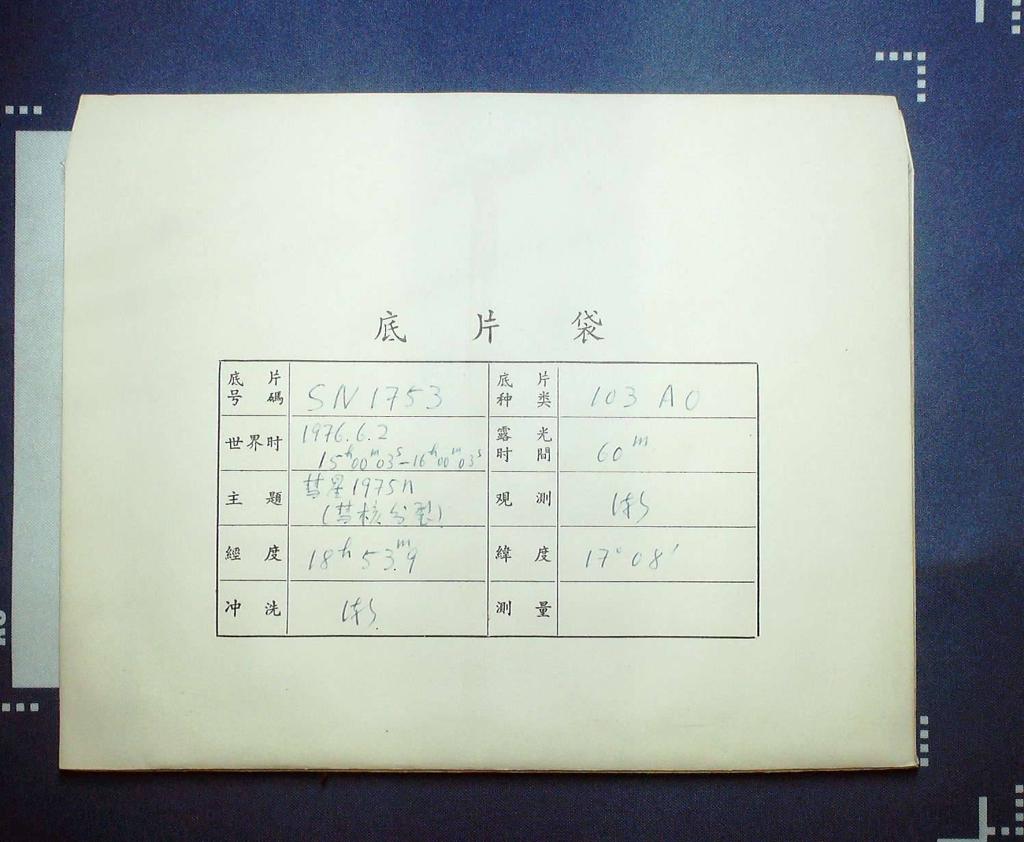 底片袋
底片号碼 SN1753 底片种类 103 AO
世界时 1976.6.2
15ʰ00ᵐ03ˢ-16ʰ00ᵐ03ˢ 露光时間 60ᵐ
主題 彗星1975n
(彗核分裂) 观測
經度 18ʰ53ᵐ.9 緯度 17°08′
冲洗 測量